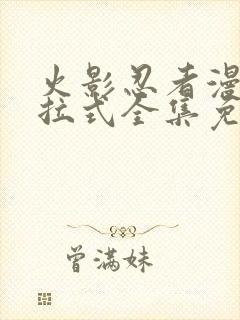 火影忍者漫
拉式全集免
曾满妹